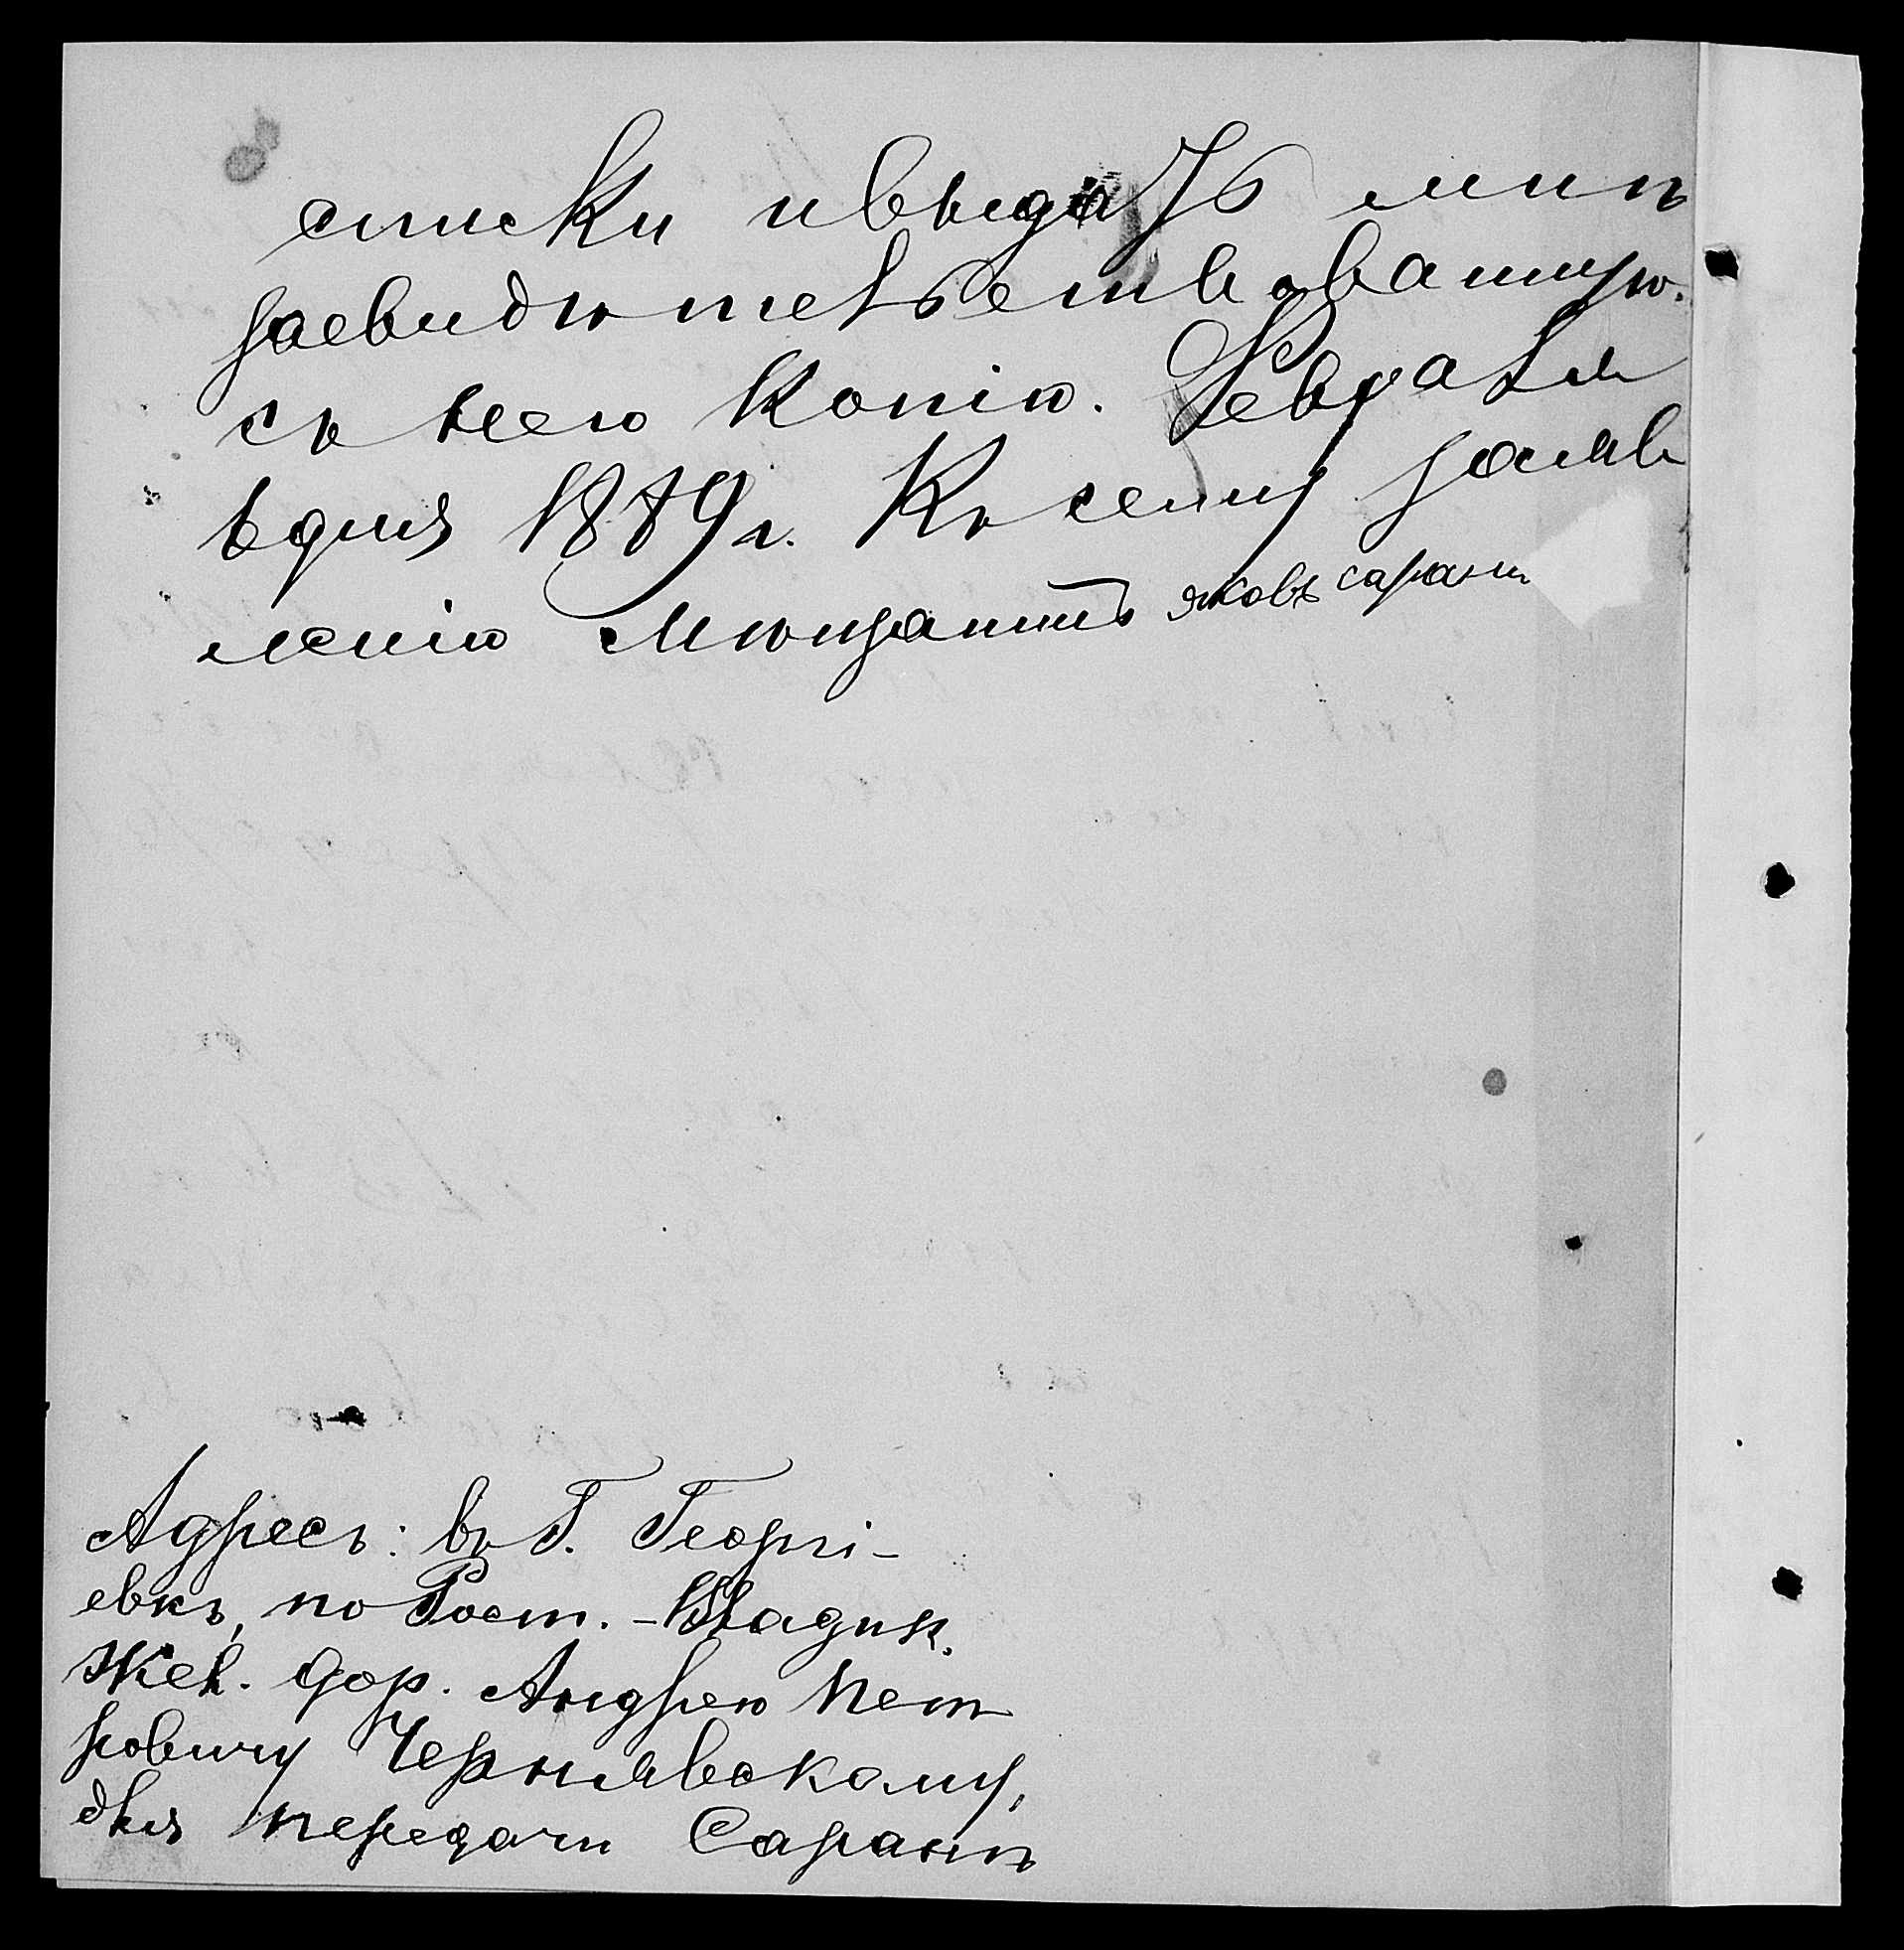 списки ивыдать мнѣ
засвидѣтельствованную
съ него копію. Февраля
ъ дня 1889 г. Къ сему заяв
ленію Мѣщанинъ яковъ саранч
Адресъ: въ Г. Георгі-
евкъ, по Рост. - Владик.
Жел. дор. Андрею Пет
ровичу Чернявскому,
для передачи Саранч